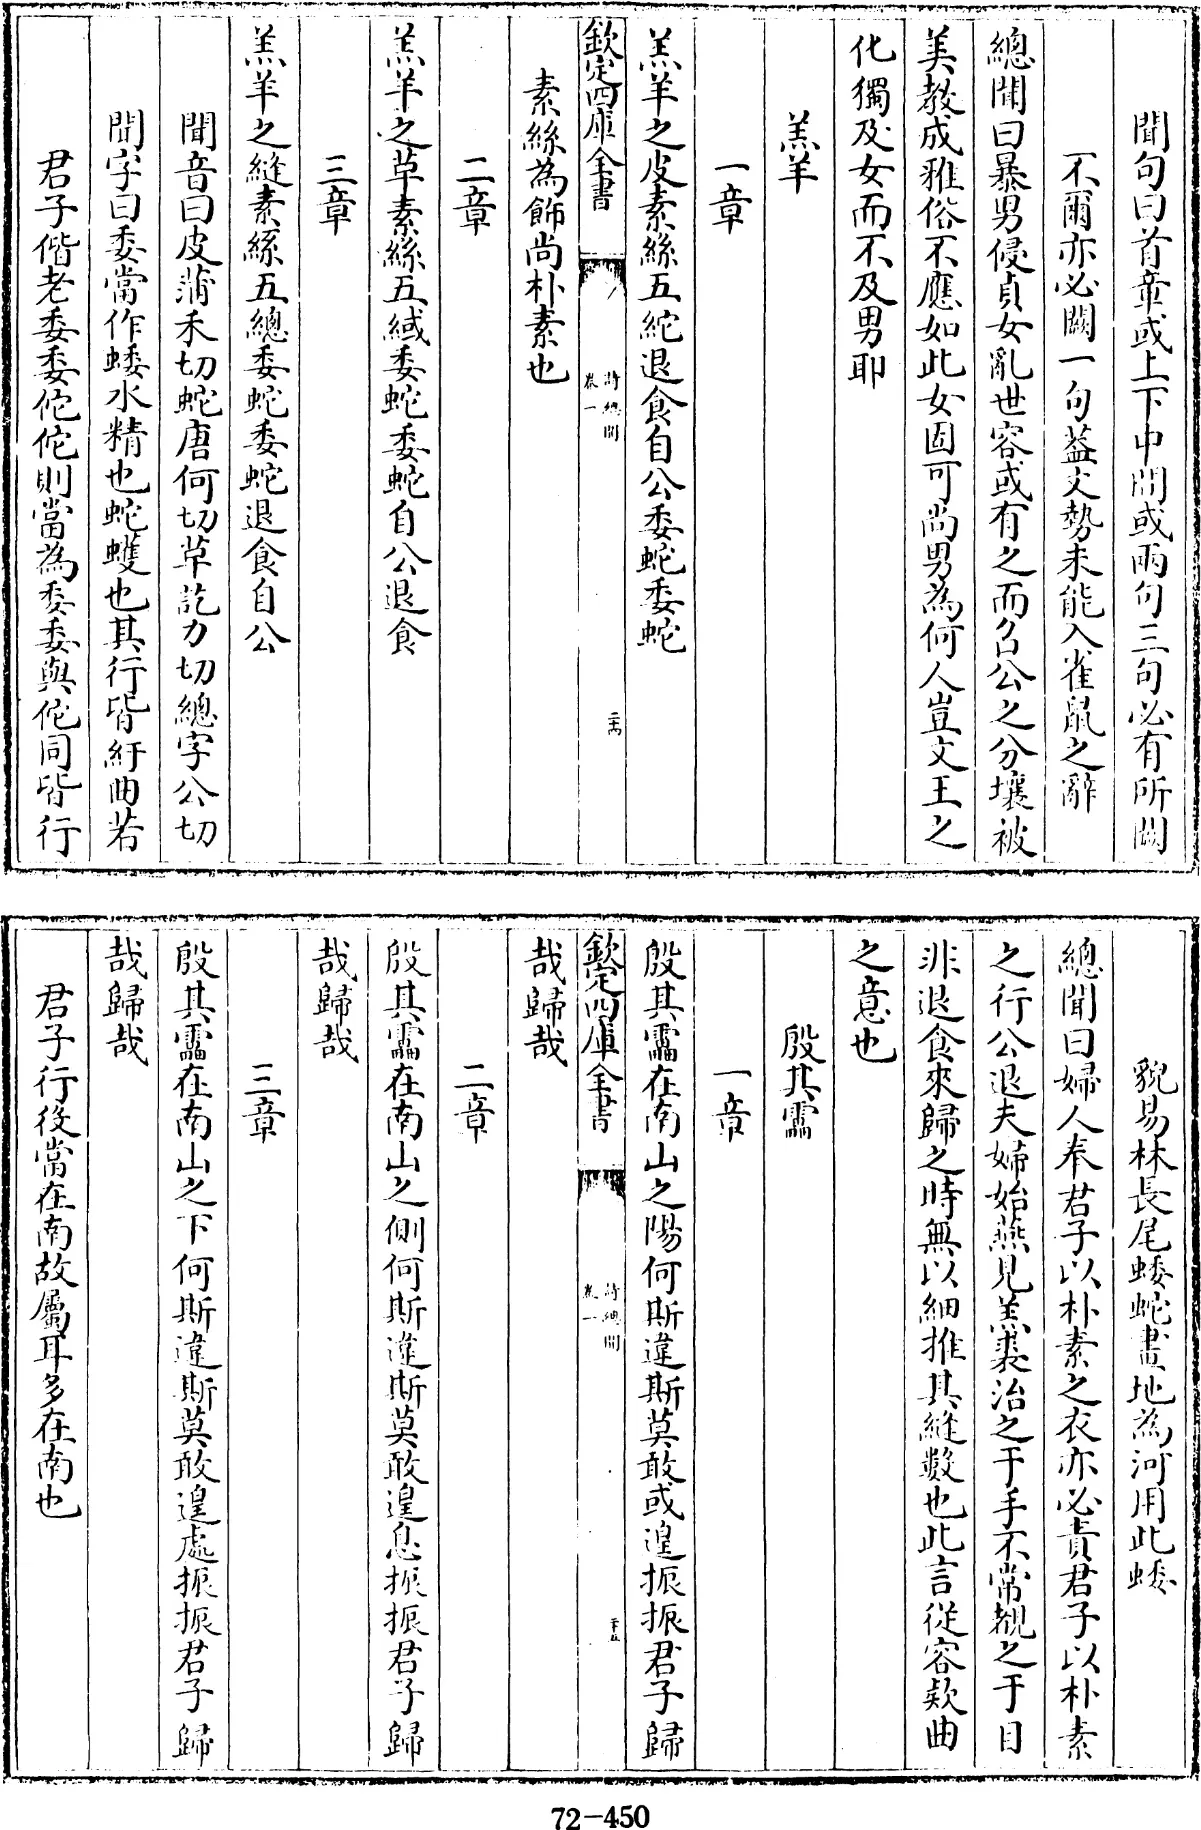 聞句曰首章或上下中間或兩句三句必有所闕
不爾亦必闕一句葢文勢未能入雀鼠之辭
總聞曰暴男侵貞女亂世容或有之而召公之分壤被
美教成雅俗不應如此女固可尚男為何人豈文王之
化獨及女而不及男耶
羔羊
一章
羔羊之皮素絲五紽退食自公委蛇委蛇
欽定四庫全書
詩總聞
卷一
二十四
素絲為飾尚朴素也
二章
羔羊之革素絲五緎委蛇委蛇自公退食
三章
羔羊之縫素絲五總委蛇委蛇退食自公
聞音曰皮蒲禾切蛇唐何切革訖力切總字公切
聞字曰委當作蜲水精也蛇蠖也其行皆紆曲若
君子偕老委委佗佗則當為委委與佗同皆行
貌易林長尾蜲蛇畫地為河用此蜲
總聞曰婦人奉君子以朴素之衣亦必責君子以朴素
之行公退夫婦始燕見羔裘治之于手不常覩之于目
非退食來歸之時無以細推其縫數也此言從容欵曲
之意也
殷其靁
一章
殷其靁在南山之陽何斯違斯莫敢或遑振振君子歸
欽定四庫全書
詩總聞
卷一
二十五
哉歸哉
二章
殷其靁在南山之側何斯違斯莫敢遑息振振君子歸
哉歸哉
三章
殷其靁在南山之下何斯違斯莫敢遑處振振君子歸
哉歸哉
君子行役當在南故屬耳多在南也
72-450